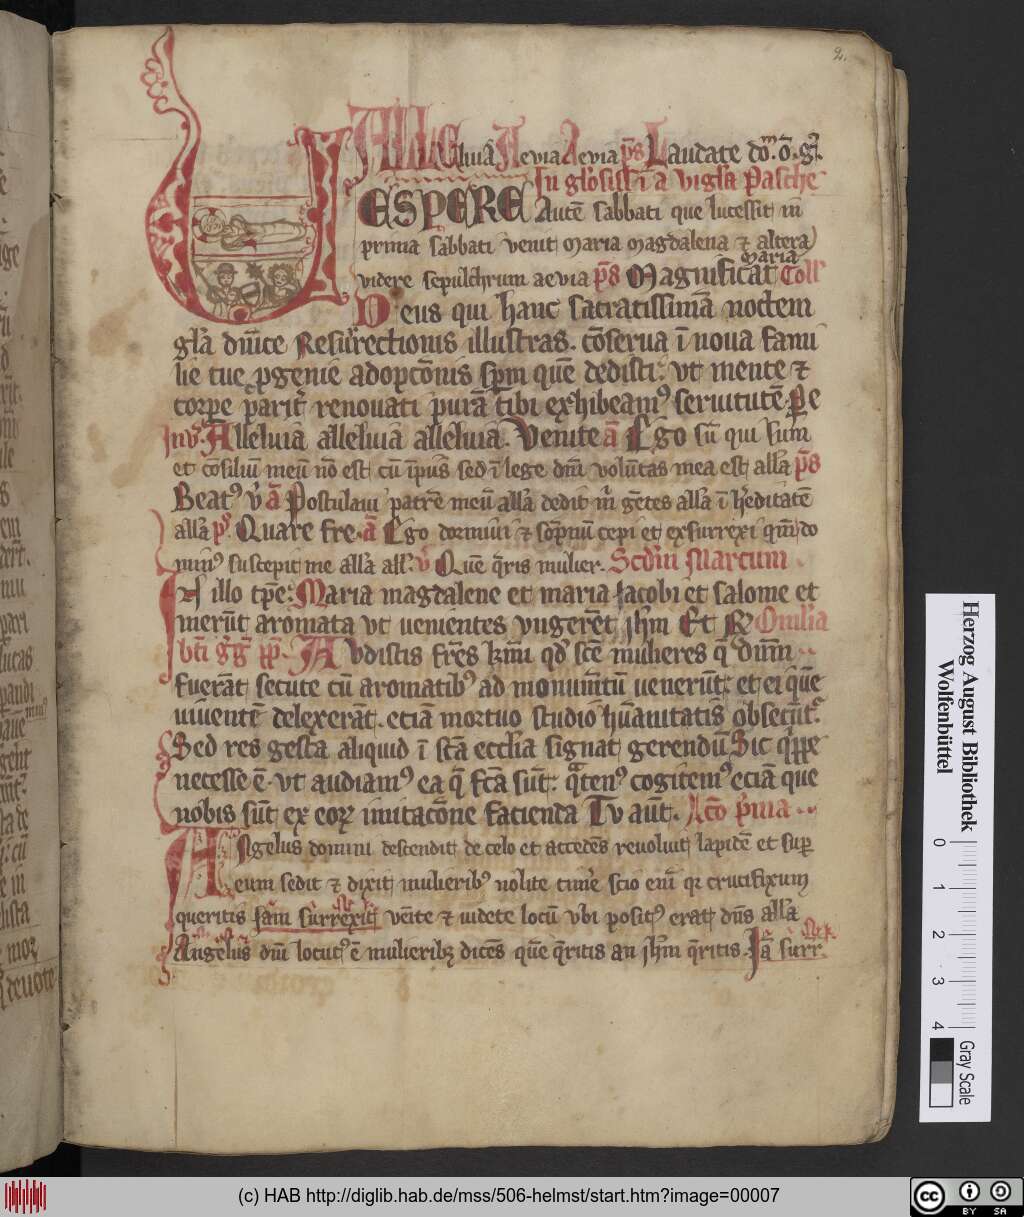 2.
ALLEluia Aevia Aevia p̄s Laudate do᷑m. o᷑. ge᷑.
In gl'osissi᷑a vigl'a Pasche
VESPERE Aute᷑ sabbati que lucessit in
prima sabbati venit maria magdalena et altera
maria
videre sepulchrum aevia p̄s Magnificat Coll'
Deus qui hanc sacratissima᷑ noctem
gl'a dn̄ice Resurrectionis illustras. co᷑serua i᷑ noua fami
lie tue p̱genie adopco᷑nis sp̄m que᷑ dedisti. vt mente et
corpe parit' renouati pura᷑ tibi exhibeam⁹ seruitute᷑. Pe
Inv'. Alleluia alleluia alleluia. Venite a᷑ Ego su᷑ qui sum
et co᷑siliu᷑ meu᷑ no᷑ est cu᷑ i᷑pius sed i᷑ lege dn̄i volu᷑tas mea est all'a p̄s
Beat⁹ v' a᷑ Postulaui patre᷑ meu᷑ all'a dedit m' ge᷑tes all'a i᷑ h'editate᷑
all'a p⁹. Quare fre. a᷑ Ego dormiui et so᷑pnu᷑ cepi et exsurrexi qm̄ do
min⁹ suscepit me all'a all'. v' Que᷑ q᷑ris mulier. Scd'm Marcum
In illo tp̄e: Maria magdalene et maria Jacobi et salome et
meru᷑t aromata vt uenientes vngere᷑t jh'm Et R' Omilia
bt̄i g'g' pp̄. Avdistis fr̄es k̄mi qd' sc̄e mulieres q᷑ dn̄m
fuera᷑t secute cu᷑ aromatib⁹ ad monum̄tu᷑ ueneru᷑t. et ei que᷑
uiuente᷑ delexera᷑t. etia᷑ mortuo studio hu᷑anitatis obsecu᷑t'.
Sed res gesta aliquid i᷑ sc̄a eccl'ia signat gerendu᷑ Sic q᷑ppe
necesse e᷑. vt audiam⁹ ea q᷑ fc̄a su᷑t. q᷑ten⁹ cogitem⁹ ecia᷑ que
nobis su᷑t ex eoꝝ imitaco᷑ne facienda Tv aut᷑. Lc̄o p'ma
Angelus domini descendit de celo et accede᷑s reuoluit lapide᷑ et sup̱
eum sedit et dixit mulierib⁹ nolite time᷑ scio eni᷑ qr crucifixum
queritis Ja᷑m surrexit venite et uidete locu᷑ vbi posit⁹ erat dn̄s all'a
Angelus dn̄i locut⁹ e᷑ mulierib⁹ dice᷑s que᷑ q᷑ritis an jh'm q᷑ritis. Ja᷑ surr.
Herzog August Bibliothek
Wolfenbüttel
0 1 2 3 4
Gray Scale
(c) HAB http://diglib.hab.de/mss/506-helmst/start.htm?image=00007
cc BY SA